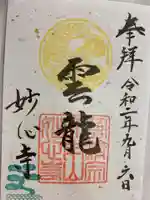 奉拝 令和二年九月六日
雲龍
妙心寺